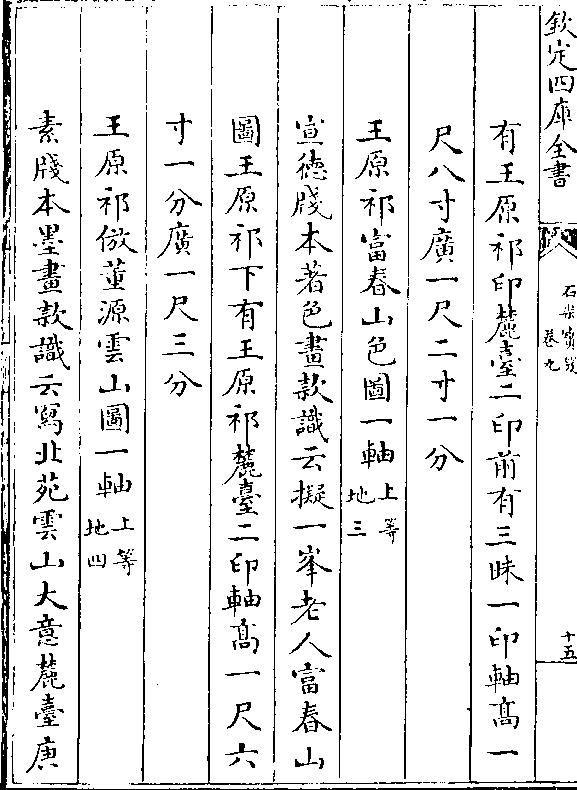 欽定四庫全書
石渠寳笈
卷九
十五
有王原祁印麓臺二印前有三昧一印軸髙一
尺八寸廣一尺二寸一分
王原祁富春山色圖一軸上等地三
宣德牋本著色畫款識云擬一峯老人富春山
圖王原祁下有王原祁麓臺二印軸髙一尺六
寸一分廣一尺三分
王原祁倣董源雲山圖一軸上等地四
素牋本墨畫款識云寫北苑雲山大意麓臺庚